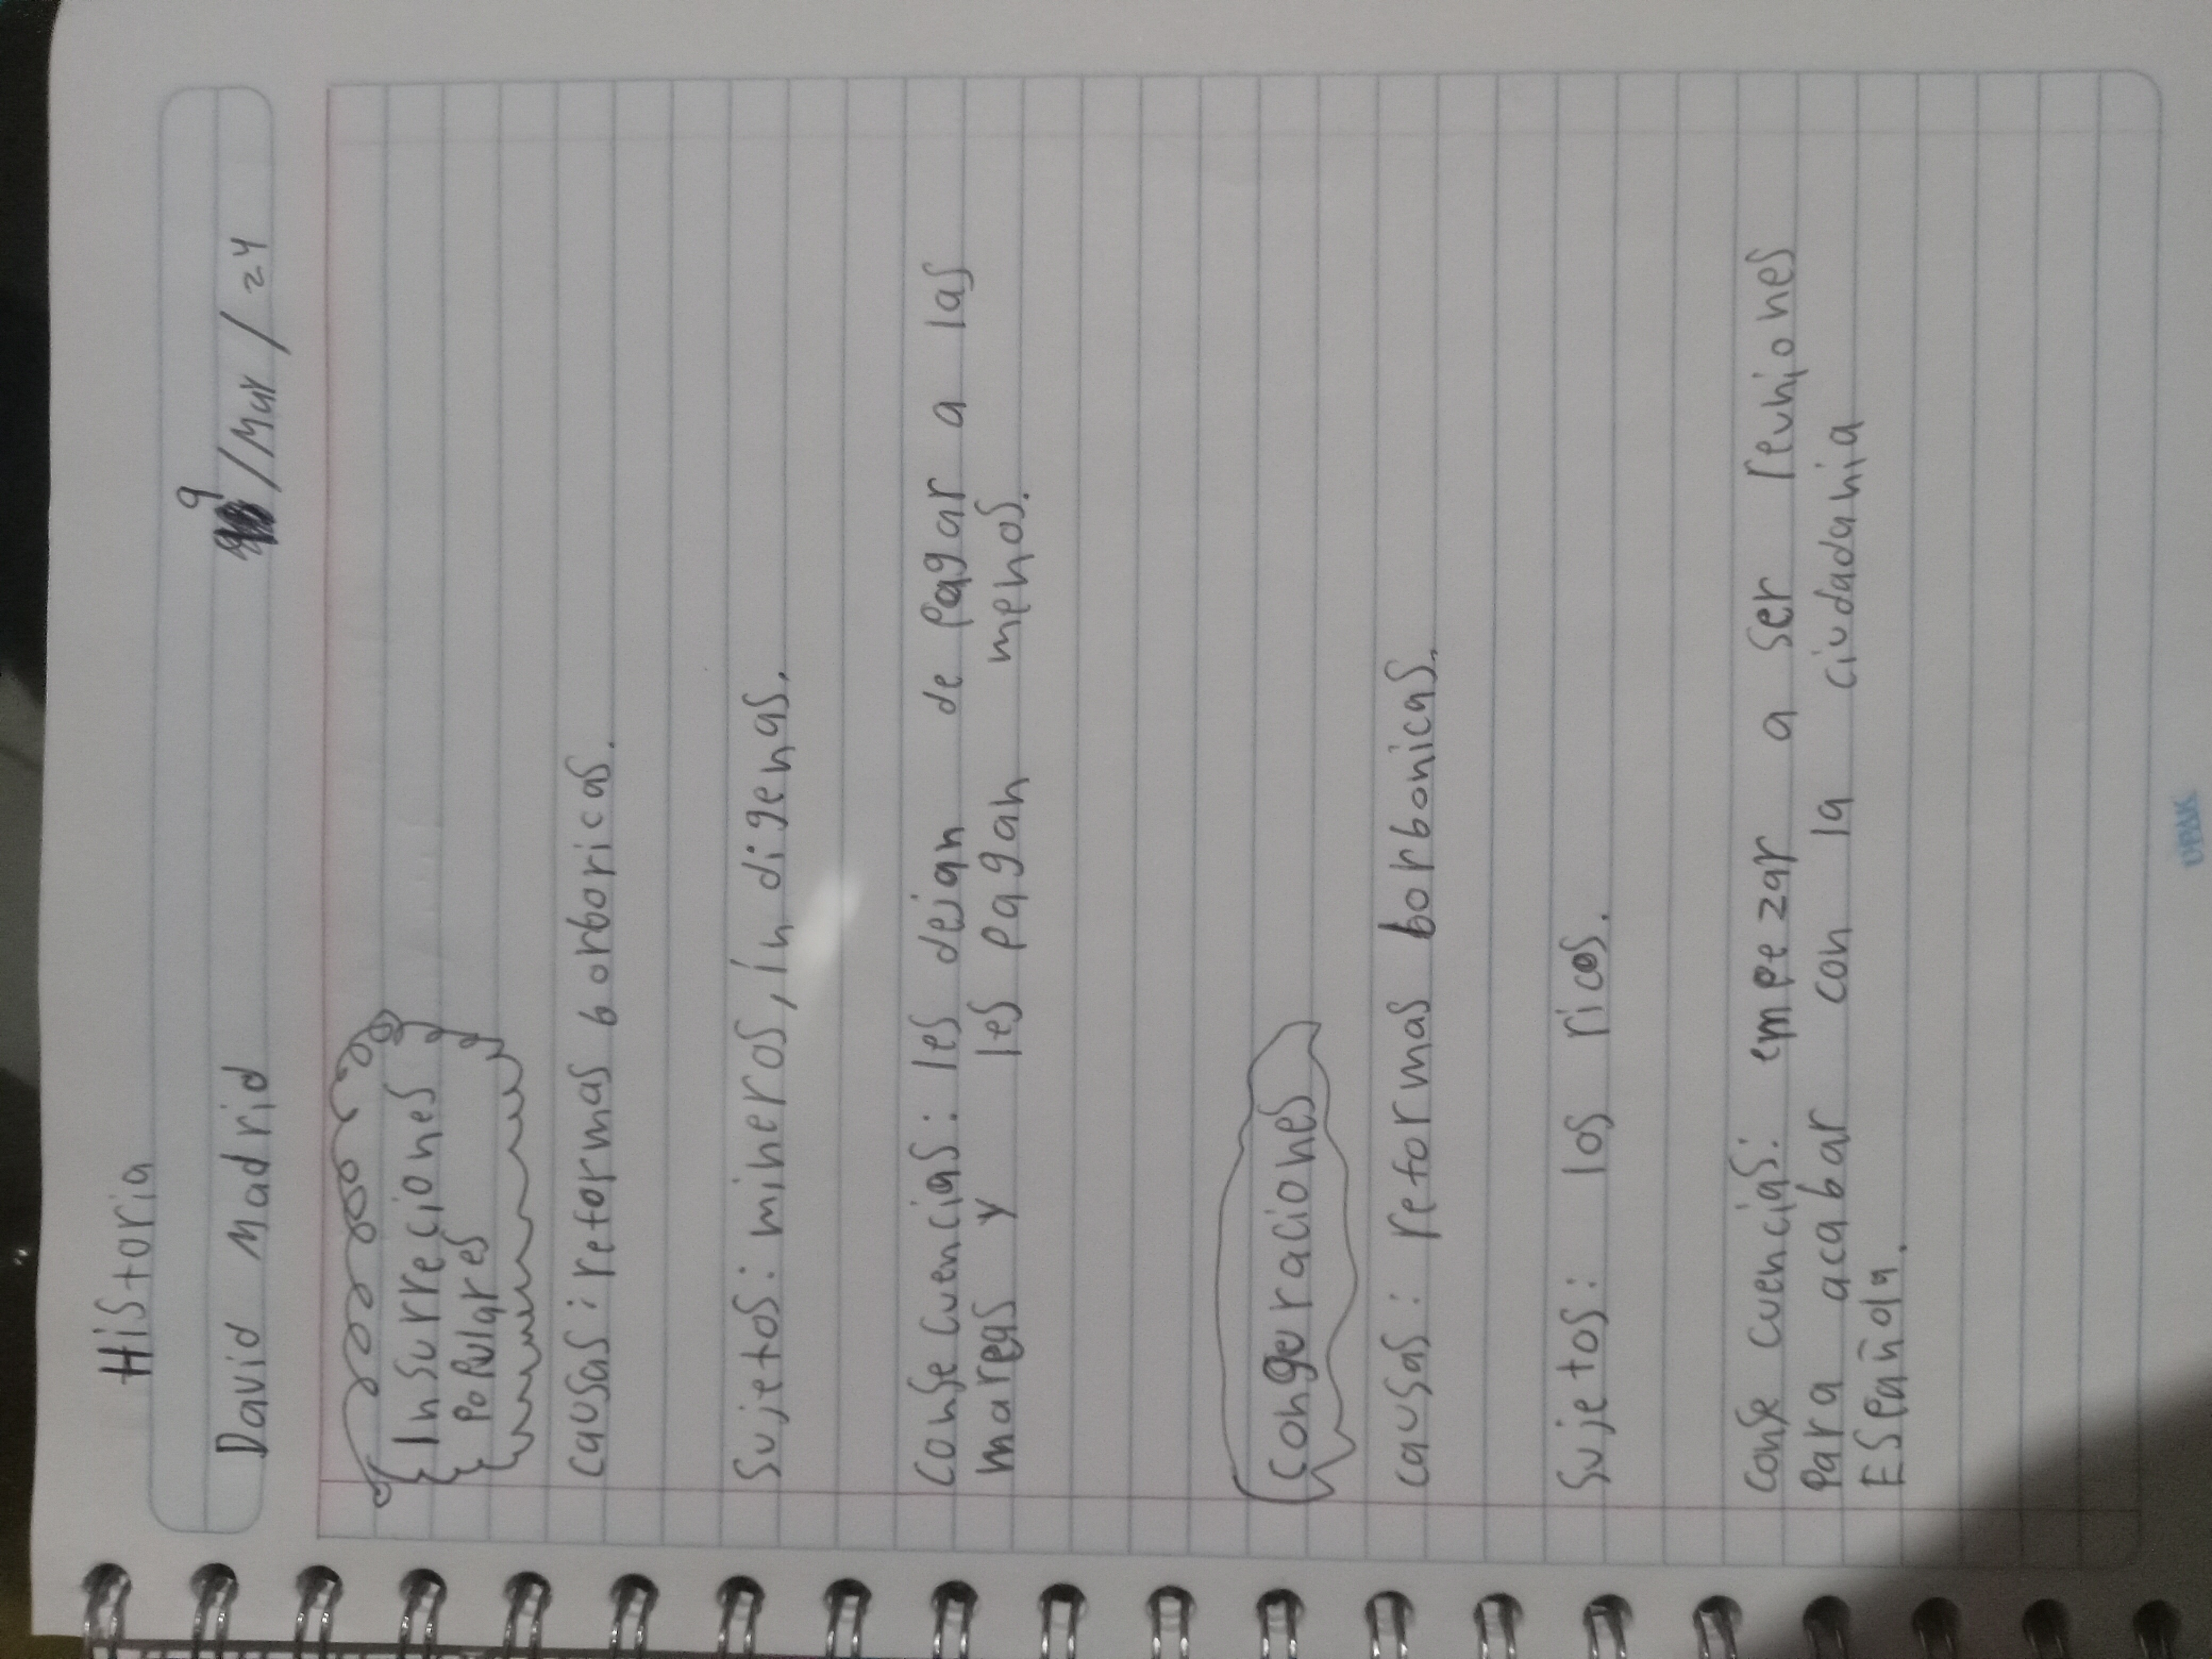 Historia
David Madrid 9/Mar/24
Insurreciones
Populares
causas: reformas borboricas.
Sujetos: mineros, indigenas.
Consecuencias: les dejan de pagar a las
mareas y les pagan menos.
Congeraciones
causas: reformas borbonicas.
Sujetos: los ricos.
Consecuencias: empezar a ser reuniones
Para acabar con la ciudadania
Española.